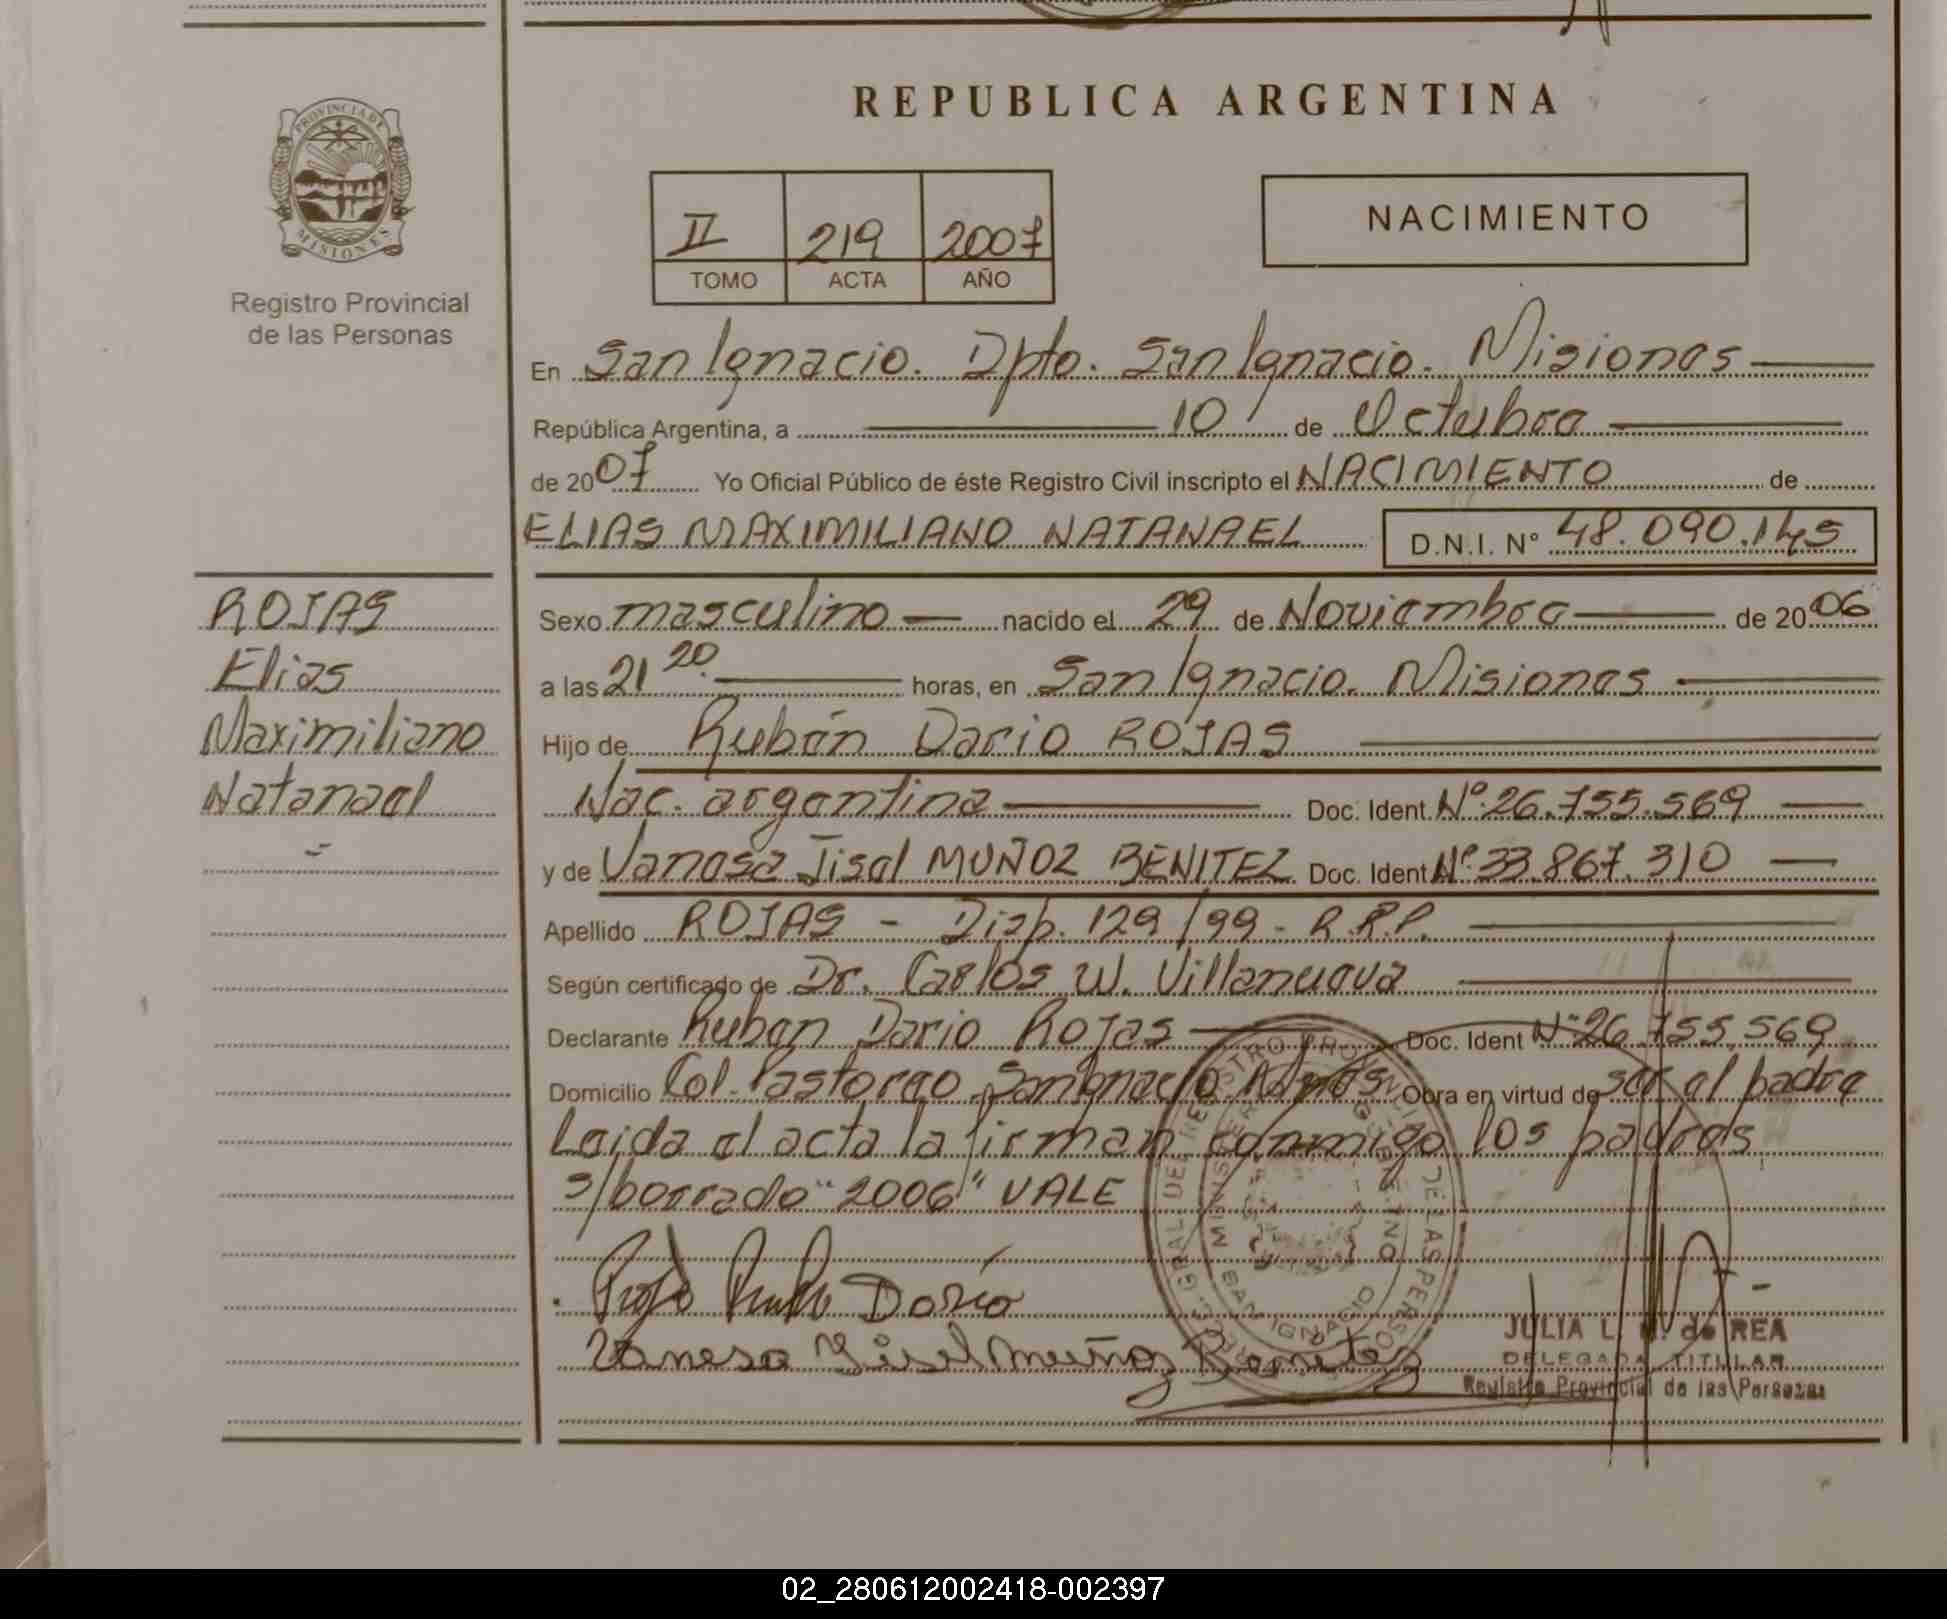 REPUBLICA ARGENTINA
PROVINCIA DE
MISIONES
Registro Provincial
de las Personas
II 219 2007
TOMO ACTA AÑO
NACIMIENTO
En San Ignacio. Dpto. San Ignacio. Misiones
República Argentina, a 10 de Octubre
de 2007 Yo Oficial Público de éste Registro Civil inscripto el NACIMIENTO de
ELIAS MAXIMILIANO NATANAEL D.N.I. Nº 48.090.145
ROJAS
Elias
Maximiliano
Natanael
Sexo masculino nacido el 29 de Noviembre de 2006
a las 21 20. horas, en San Ignacio. Misiones
Hijo de Rubén Dario ROJAS
Nac. argentina Doc. Ident. Nº 26.755.569
y de Vanesa Jisel MUÑOZ BENITEZ Doc. Ident Nº 33.867.310
Apellido ROJAS - Disp. 129/99 - R.R.P.
Según certificado de Dr. Carlos W. Villanueva
Declarante Ruben Dario Rojas Doc. Ident Nº 26.755.569
Domicilio Col. Pastoreo San Ignacio Obra en virtud de ser el padre
Leida el acta la firman conmigo los padres
s/borrado "2006" VALE
Dario
Vanesa Gisel muñoz Benitez
REGISTRO PROVINCIAL DE LAS PERSONAS
SAN IGNACIO
JULIA L. de REA
DELEGADA TITULAR
Registro Provincial de las Personas
02_280612002418-002397